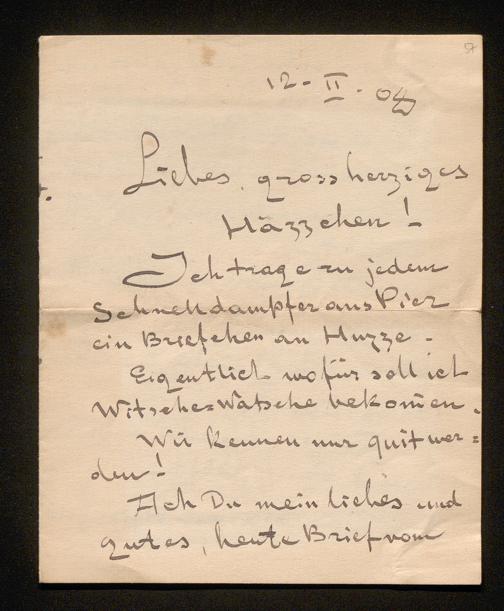 12-II.04
Liebes, grossherziges
Häzzchen!
Ich trage zu jedem
Schnelldampfer ans Pier
ein Briefchen an Huzze.
Eigentlich wofür soll ich
Witsche=Watsche bekomen.
Wir kennen nur quit wer=
den!
Ach Du mein liebes und
gutes, heute Brief vom